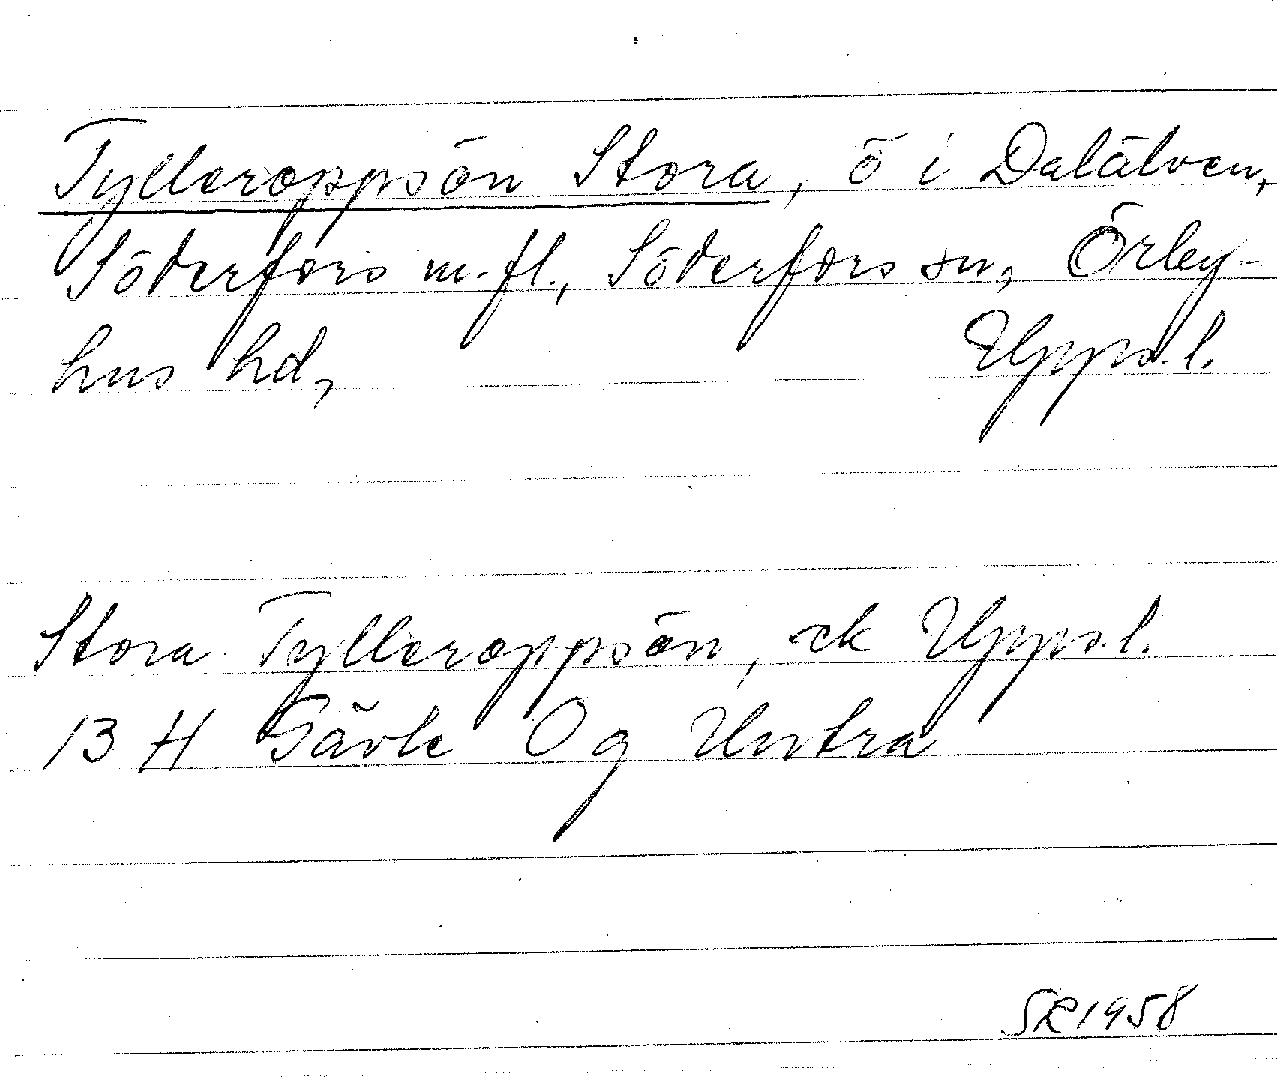 Tylleroppsön Stora, ö i Dalälven,
Söderfors m.fl., Söderfors sn, Örby-
hus hd, Upps.l.
Stora Tylleroppsön, ek Upps.l.
13 H Gävle 0g Untra
SR 1958